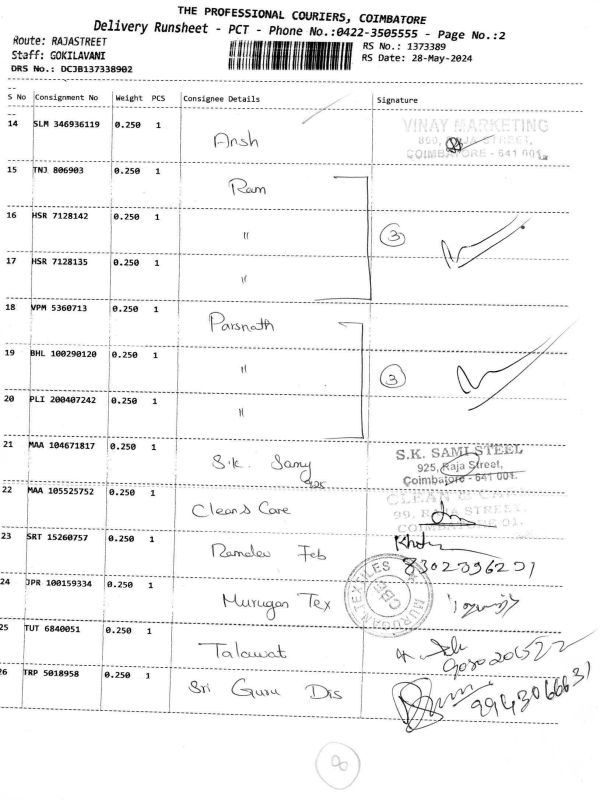 THE PROFESSIONAL COURIERS, COIMBATORE
Delivery Runsheet - PCT - Phone No.:0422-3505555 - Page No.:2
Route: RAJASTREET
RS No.: 1373389
Staff: GOKILAVANI
RS Date: 28-May-2024
DRS No.: DCJB137338902
S No Consignment No Weight PCS Consignee Details Signature
14 SLM 346936119 0.250 1 Ansh VINAY MARKETING
RAJA STREET,
COIMBATORE - 641 001.
15 TNJ 806903 0.250 1 Ram
16 HSR 7128142 0.250 1 " 3
17 HSR 7128135 0.250 1 "
18 VPM 5360713 0.250 1 Parsnath
19 BHL 100290120 0.250 1 " 3
20 PLI 200407242 0.250 1 "
21 MAA 104671817 0.250 1 S.K. Samy 925 S.K. SAMI STEEL
925, Raja Street,
Coimbatore - 641 001.
22 MAA 105525752 0.250 1 Clean & Care CLEAN & CARE
99, RAJA STREET,
COIMBATORE 01.
23 SRT 15260757 0.250 1 Ramdev Feb
8302396231
24 JPR 100159334 0.250 1 Murugan Tex MURUGAN TEXTILES CBE
25 TUT 6840051 0.250 1 Talawat
26 TRP 5018958 0.250 1 Sri Guru Dis 9943066631
8